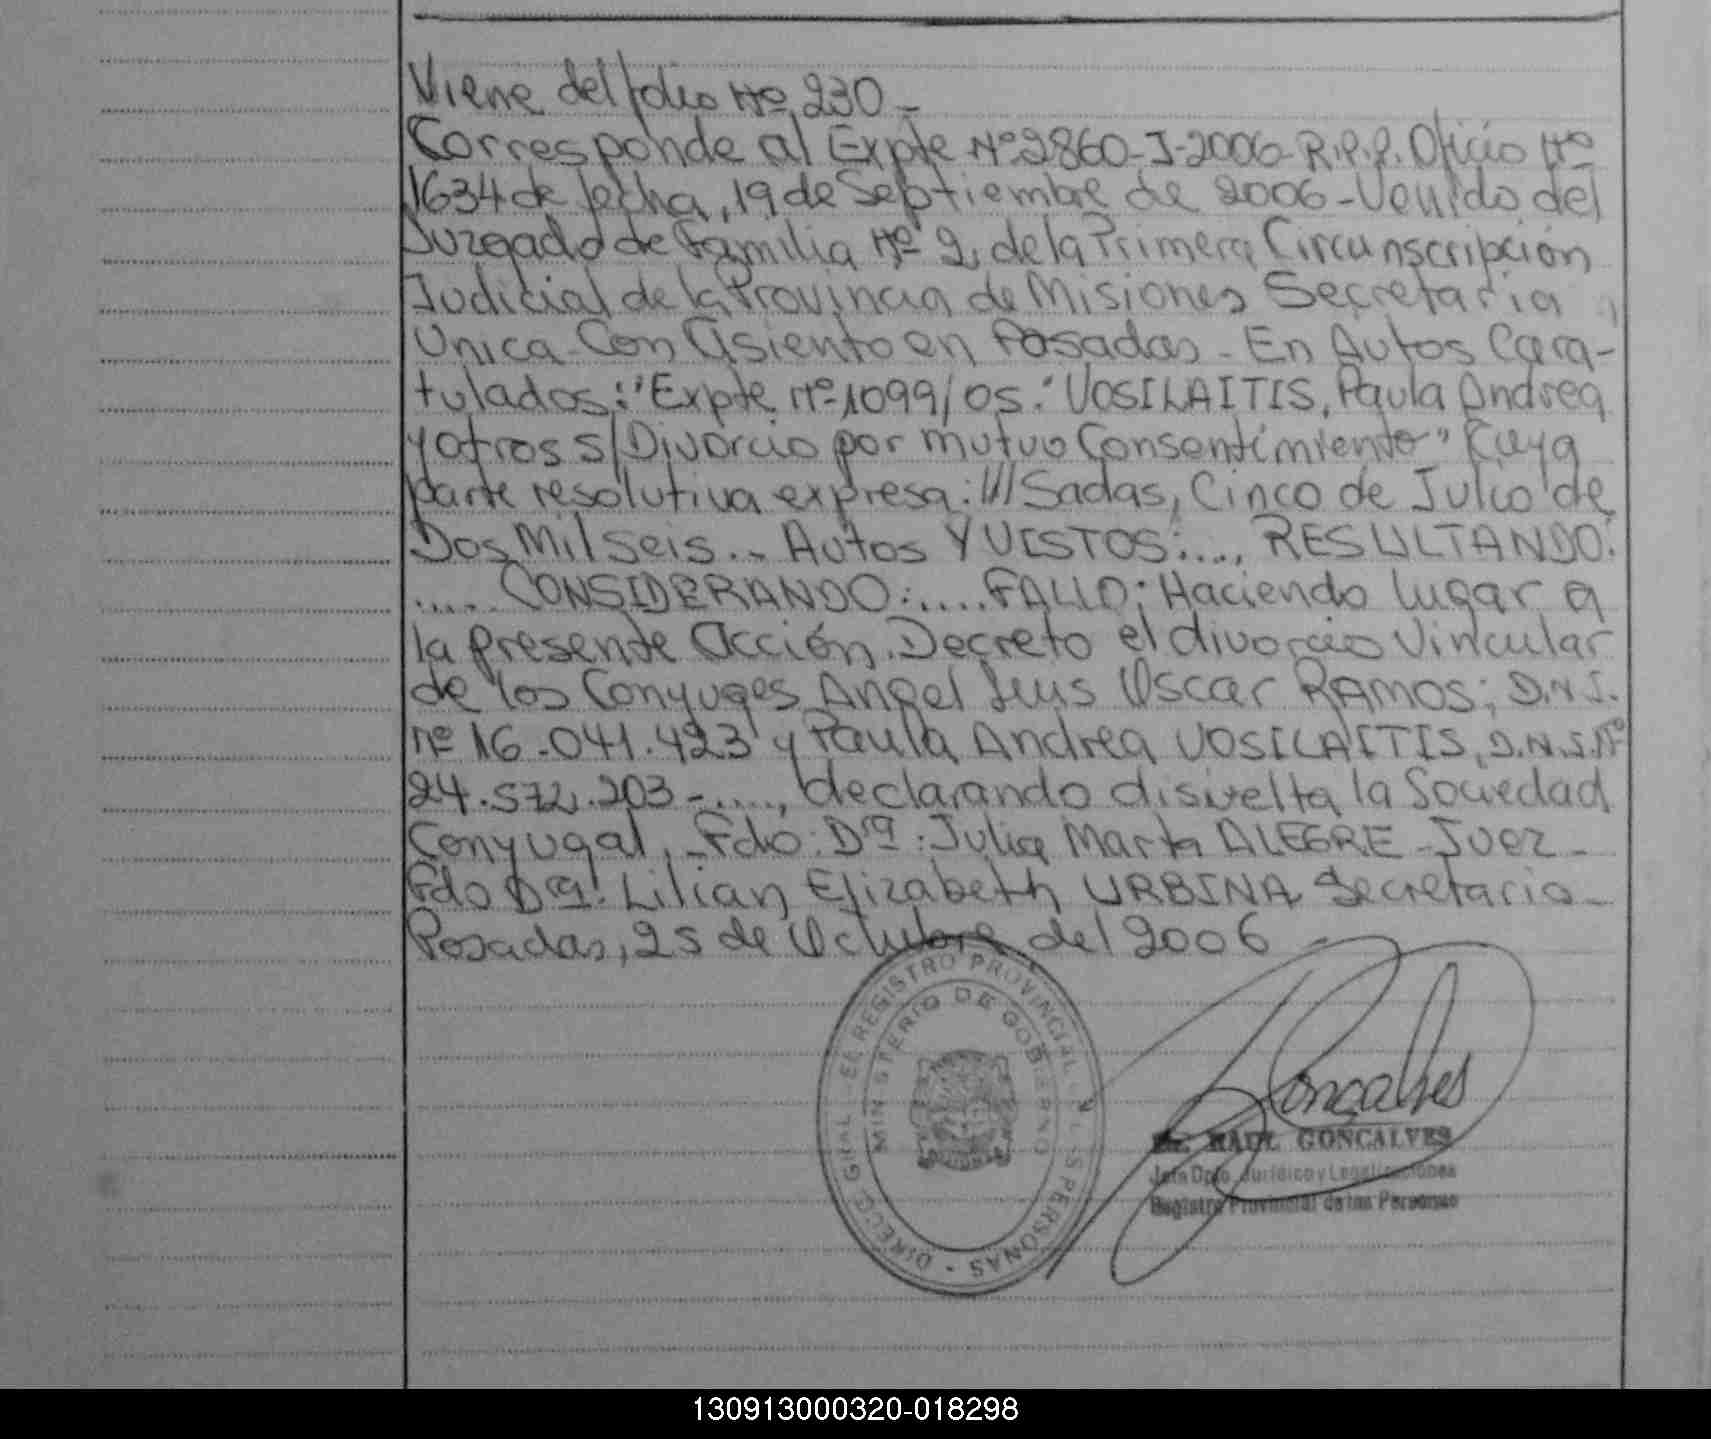 Viene del folio Nº 230 -
Corresponde al Expte Nº 2860-J-2006- R.P.P. Oficio Nº
1634 de fecha, 19 de Septiembre de 2006 - Venido del
Juzgado de Familia Nº 2, de la Primera Circunscripción
Judicial de la Provincia de Misiones Secretaria
Unica - Con Asiento en Posadas - En Autos Cara-
tulados: "Expte Nº 1099/05: "VOSILAITIS, Paula Andrea
y otros S/Divorcio por mutuo Consentimiento" Cuya
parte resolutiva expresa: ///Sadas, Cinco de Julio de
Dos Mil Seis... Autos Y VISTOS:...., RESULTANDO:
..... CONSIDERANDO:.....FALLO: Haciendo lugar a
la presente Acción. Decreto el divorcio Vincular
de los Conyuges Angel Luis Oscar RAMOS; D.N.I.
nº 16.041.423 y Paula Andrea VOSILAITIS, D.N.I. Nº
24.572.203 -....., declarando disuelta la Sociedad
Conyugal, - Fdo: Dra: Julia Marta ALEGRE - Juez -
Fdo Dra: Lilian Elizabeth URBINA Secretaria -
Posadas, 25 de Octubre del 2006 -
DIRECC. GRAL. REGISTRO PROVINCIAL PERSONAS -
MINISTERIO DE GOBIERNO
MISIONES
Goncalves
Dr. RAUL GONCALVES
Jefe Dpto. Jurídico y Legalizaciones
Registro Provincial de las Personas
130913000320-018298